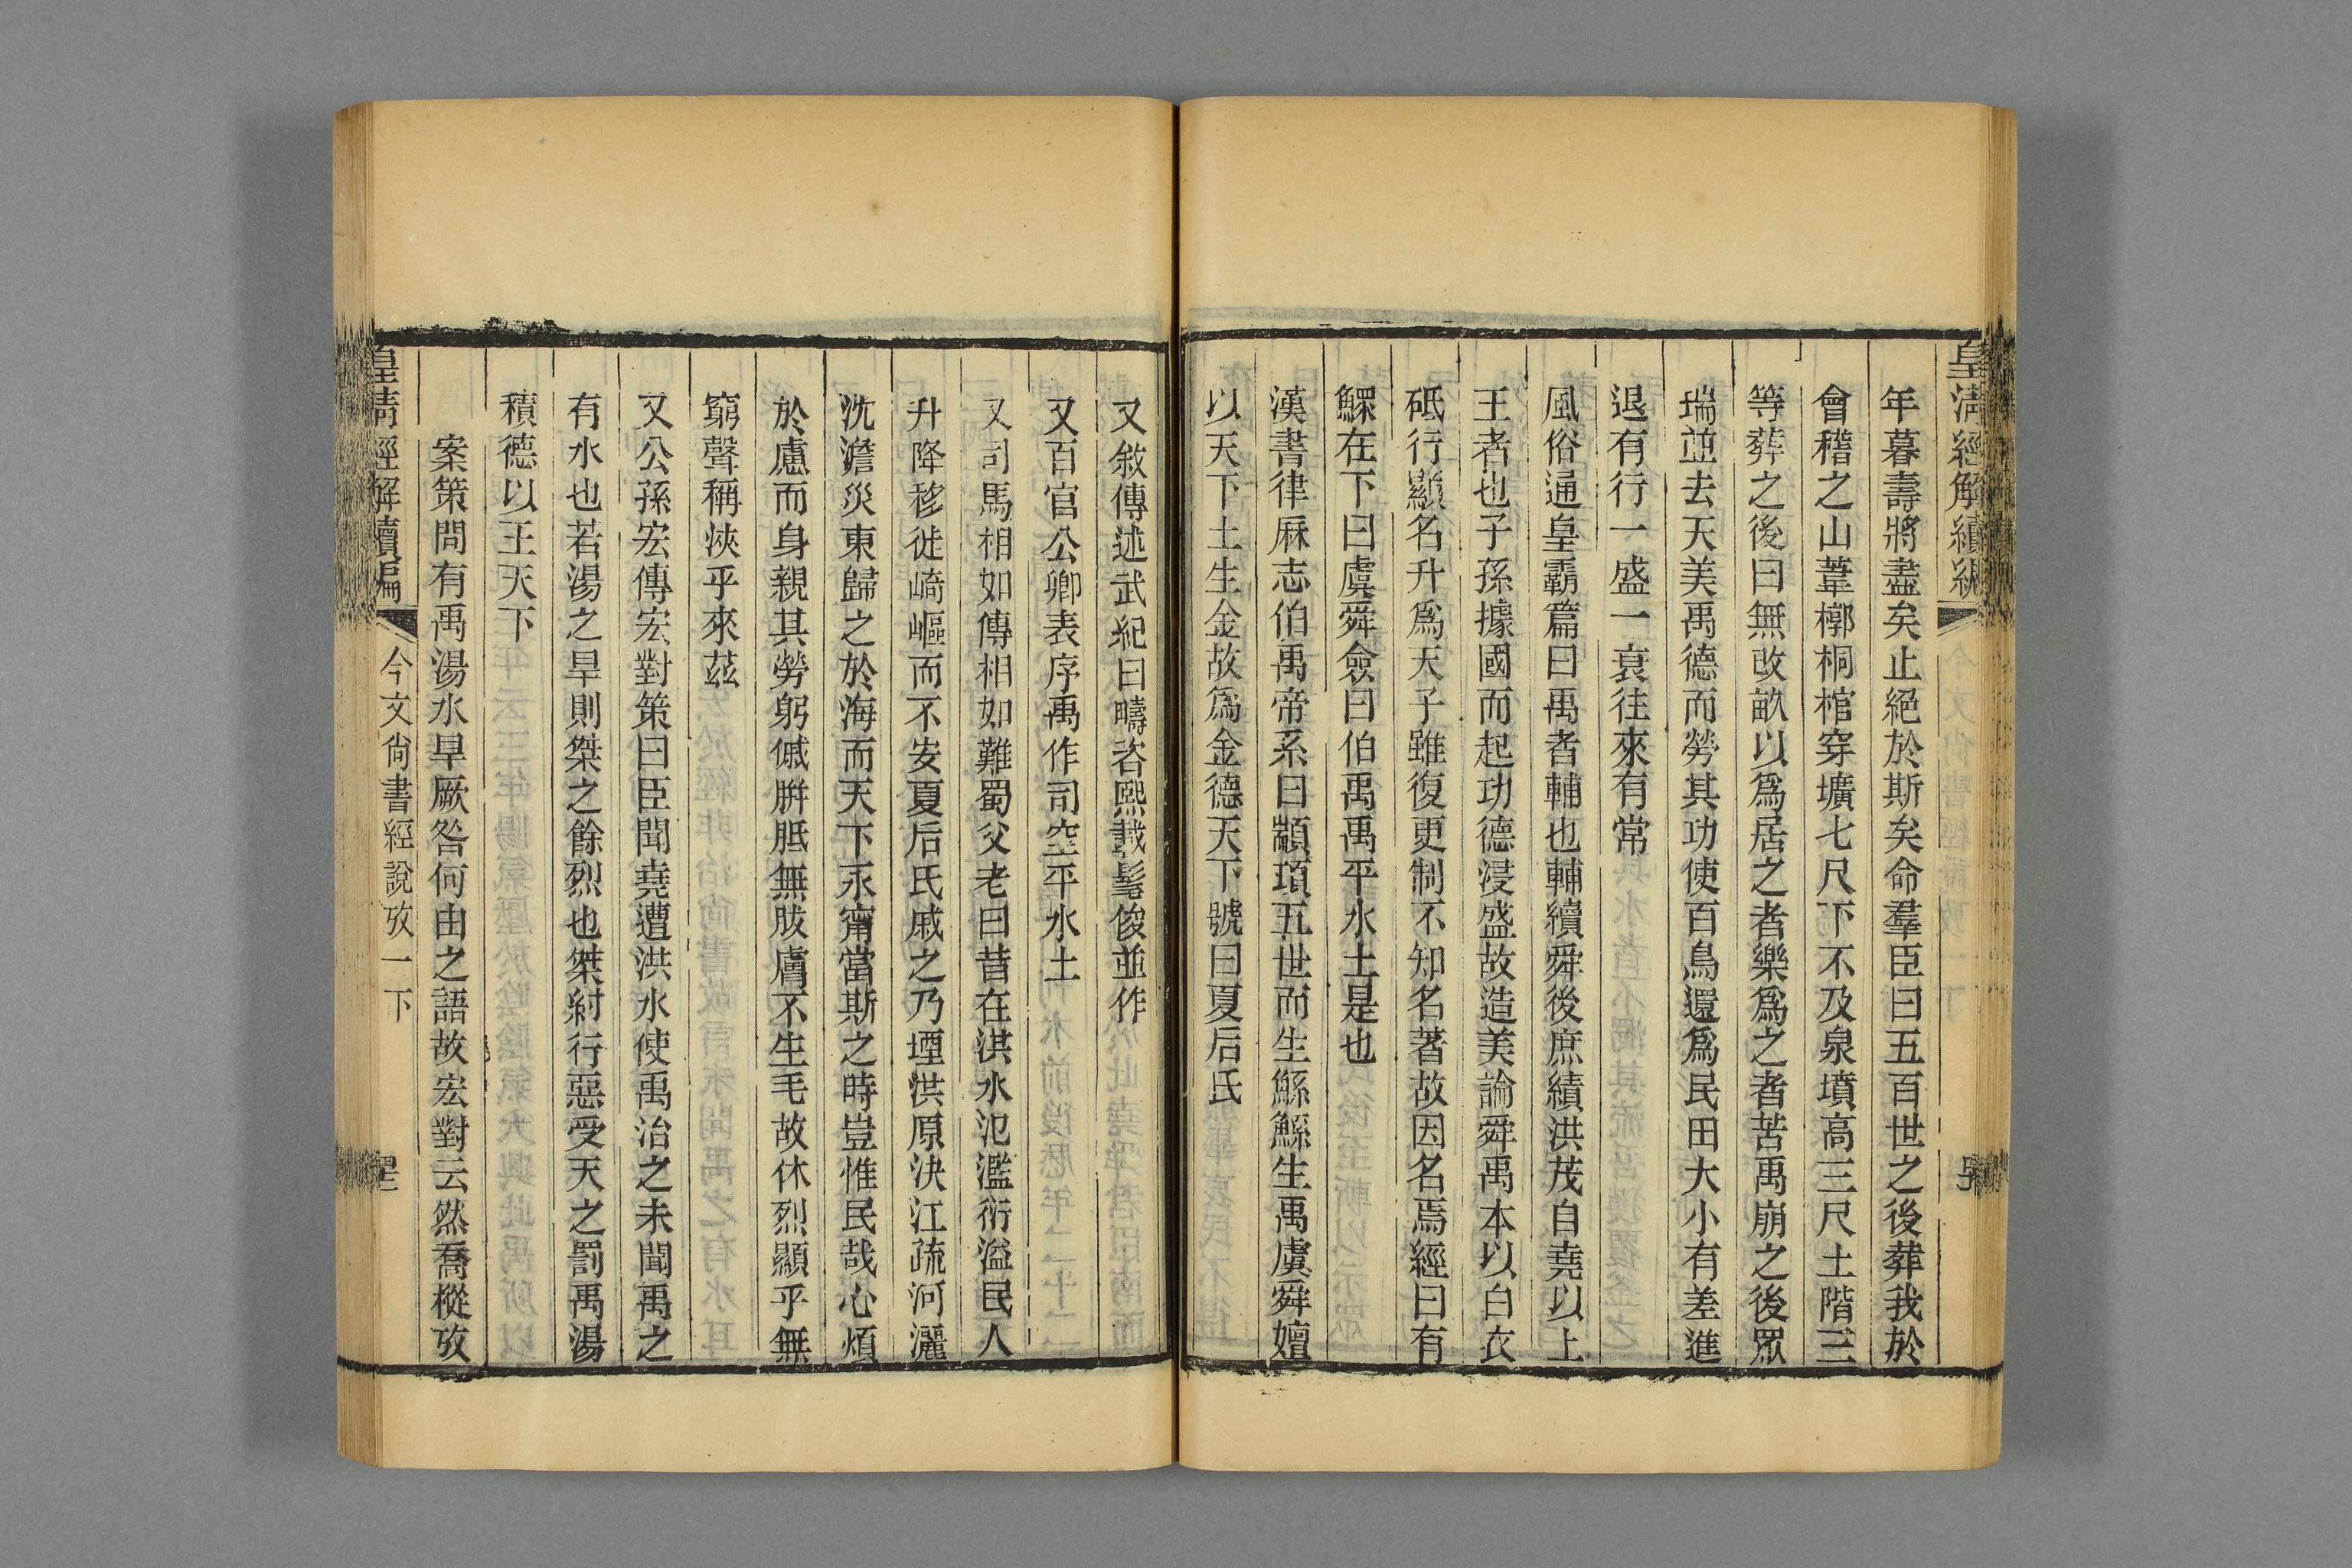 皇清經解續編
年暮壽將盡矣止絕於斯矣命羣臣曰五百世之後葬我於
會稽之山葦槨桐棺穿壙七尺下不及泉墳高三尺土階三
等葬之後曰無改畝以爲居之者樂爲之者苦禹崩之後眾
瑞並去天美禹德而勞其功使百鳥還爲民田大小有差進
退有行一盛一衰往來有常
風俗通皇霸篇曰禹者輔也輔續舜後庶績洪茂自堯以上
王者也子孫據國而起功德浸盛故造美論舜禹本以白衣
砥行顯名升爲天子雖復更制不知名著故因名焉經曰有
鰥在下曰虞舜僉曰伯禹禹平水土是也
漢書律厤志伯禹帝系曰顓頊五世而生鯀鯀生禹虞舜嬗
以天下土生金故爲金德天下號曰夏后氏
又敘傳述武紀曰疇咨熙載髦俊並作
又百官公卿表序禹作司空平水土
又司馬相如傳相如難蜀父老曰昔在洪水氾濫衍溢民人
升降移徙崎嶇而不安夏后氏戚之乃堙洪原決江疏河灑
沈澹災東歸之於海而天下永甯當斯之時豈惟民哉心煩
於慮而身親其勞躬傶胼胝無胈膚不生毛故休烈顯乎無
窮聲稱浹乎來茲
又公孫宏傳宏對策曰臣聞堯遭洪水使禹治之未聞禹之
有水也若湯之旱則桀之餘烈也桀紂行惡受天之罰禹湯
積德以王天下
案策問有禹湯水旱厥咎何由之語故宏對云然喬樅攷
皇清經解續編
今文尙書經說攷一下